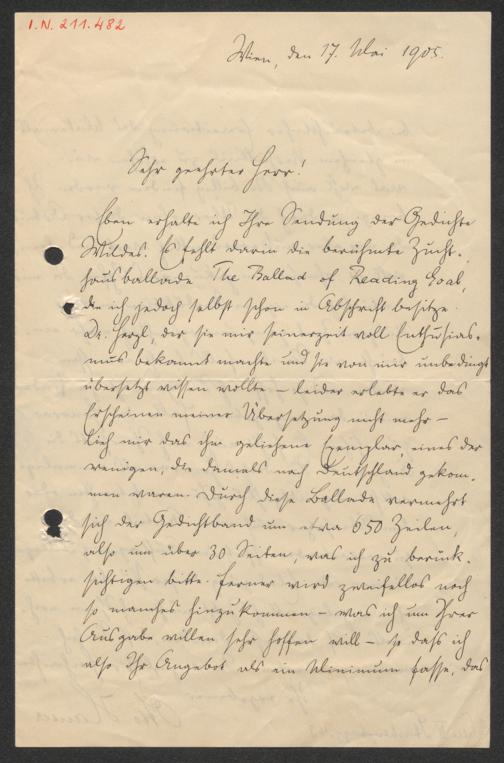 I.N. 211.482
Wien, den 17. Mai 1905.
Sehr geehrter Herr!
Eben erhalte ich Ihre Sendung der Gedichte
Wildes. Es fehlt darin die berühmte Zucht-
hausballade The Ballad of Reading Goal,
die ich jedoch selbst schon in Abschrift besitze.
Dr. Herzl, der sie mir seinerzeit voll Enthusias-
mus bekannt machte und sie von mir unbedingt
übersetzt wissen wollte – leider erlebte er das
Erscheinen meiner Übersetzung nicht mehr –
lieh mir das ihm geliehene Exemplar, eines der
wenigen, die damals nach Deutschland gekom-
men waren. Durch diese Ballade vermehrt
sich der Gedichtband um etwa 650 Zeilen,
also um über 30 Seiten, was ich zu berück-
sichtigen bitte. Ferner wird zweifellos noch
so manches hinzukommen – was ich um Ihrer
Ausgabe willen sehr hoffen will – so dass ich
also Ihr Angebot als ein Minimum fasse, das